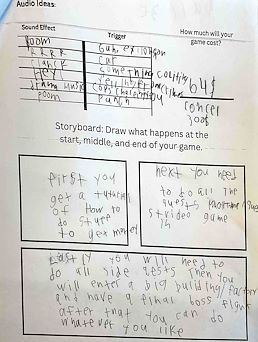 Audio Ideas:
Sound Effect
Trigger
How much will your game cost?
Boom
Gun, explosion
RRRR
Car
Clank
Something
Hey!
Yell
64$
Boom
Punch
300$
Storyboard: Draw what happens at the
start, middle, and end of your game.
First you
get a tutorial
of How to
do stuff
to get money
next you need
to do all the
video game
Lastly you will need to
do all side qests Then you
will enter a big building/factory
and have a final boss fight
after that you can do
whatever you like